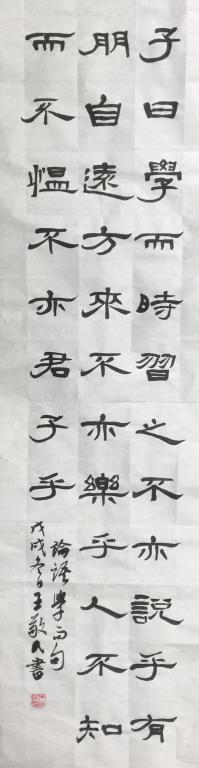 子曰學而時習之不亦説乎有
朋自遠方來不亦樂乎人不知
而不愠不亦君子乎
論語學而句
戊戌冬日王敬民書